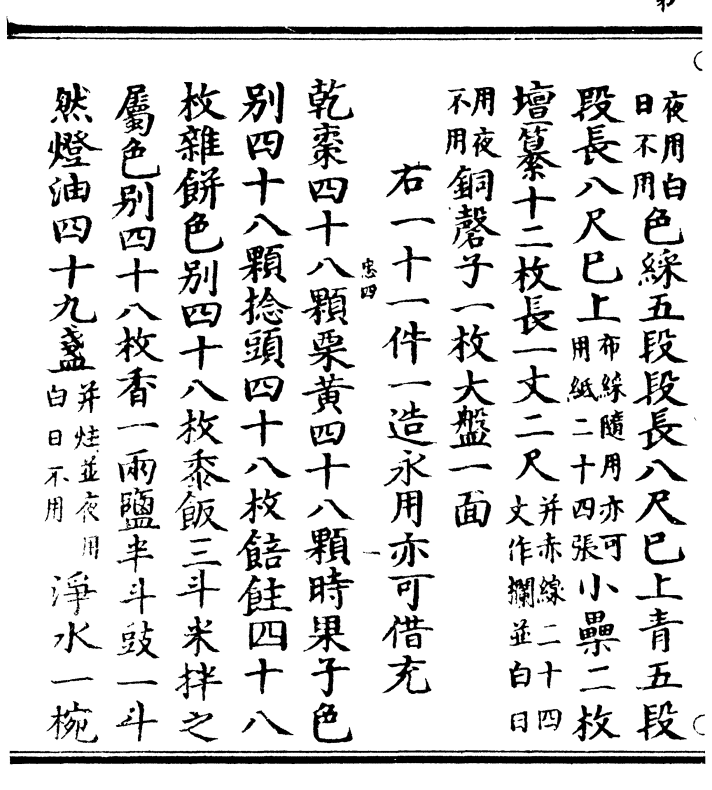 夜用白日不用色綵五段段長八尺已上青五段
段長八尺已上布綵隨用亦可用紙二十四張小壘二枚
壇纂十二枚長一丈二尺并赤線二十四丈作攔並白日
用夜不用銅磬子一枚大盤一面
右一十一件一造永用亦可借充
乾棗四十八顆栗黃四十八顆時果子色
忠四
別四十八顆捻頭四十八枚餢飳四十八
枚雜餅色別四十八枚黍飯三斗米拌之
屬色別四十八枚香一兩鹽半斗豉一斗
然燈油四十九盞并炷並夜用白日不用淨水一椀